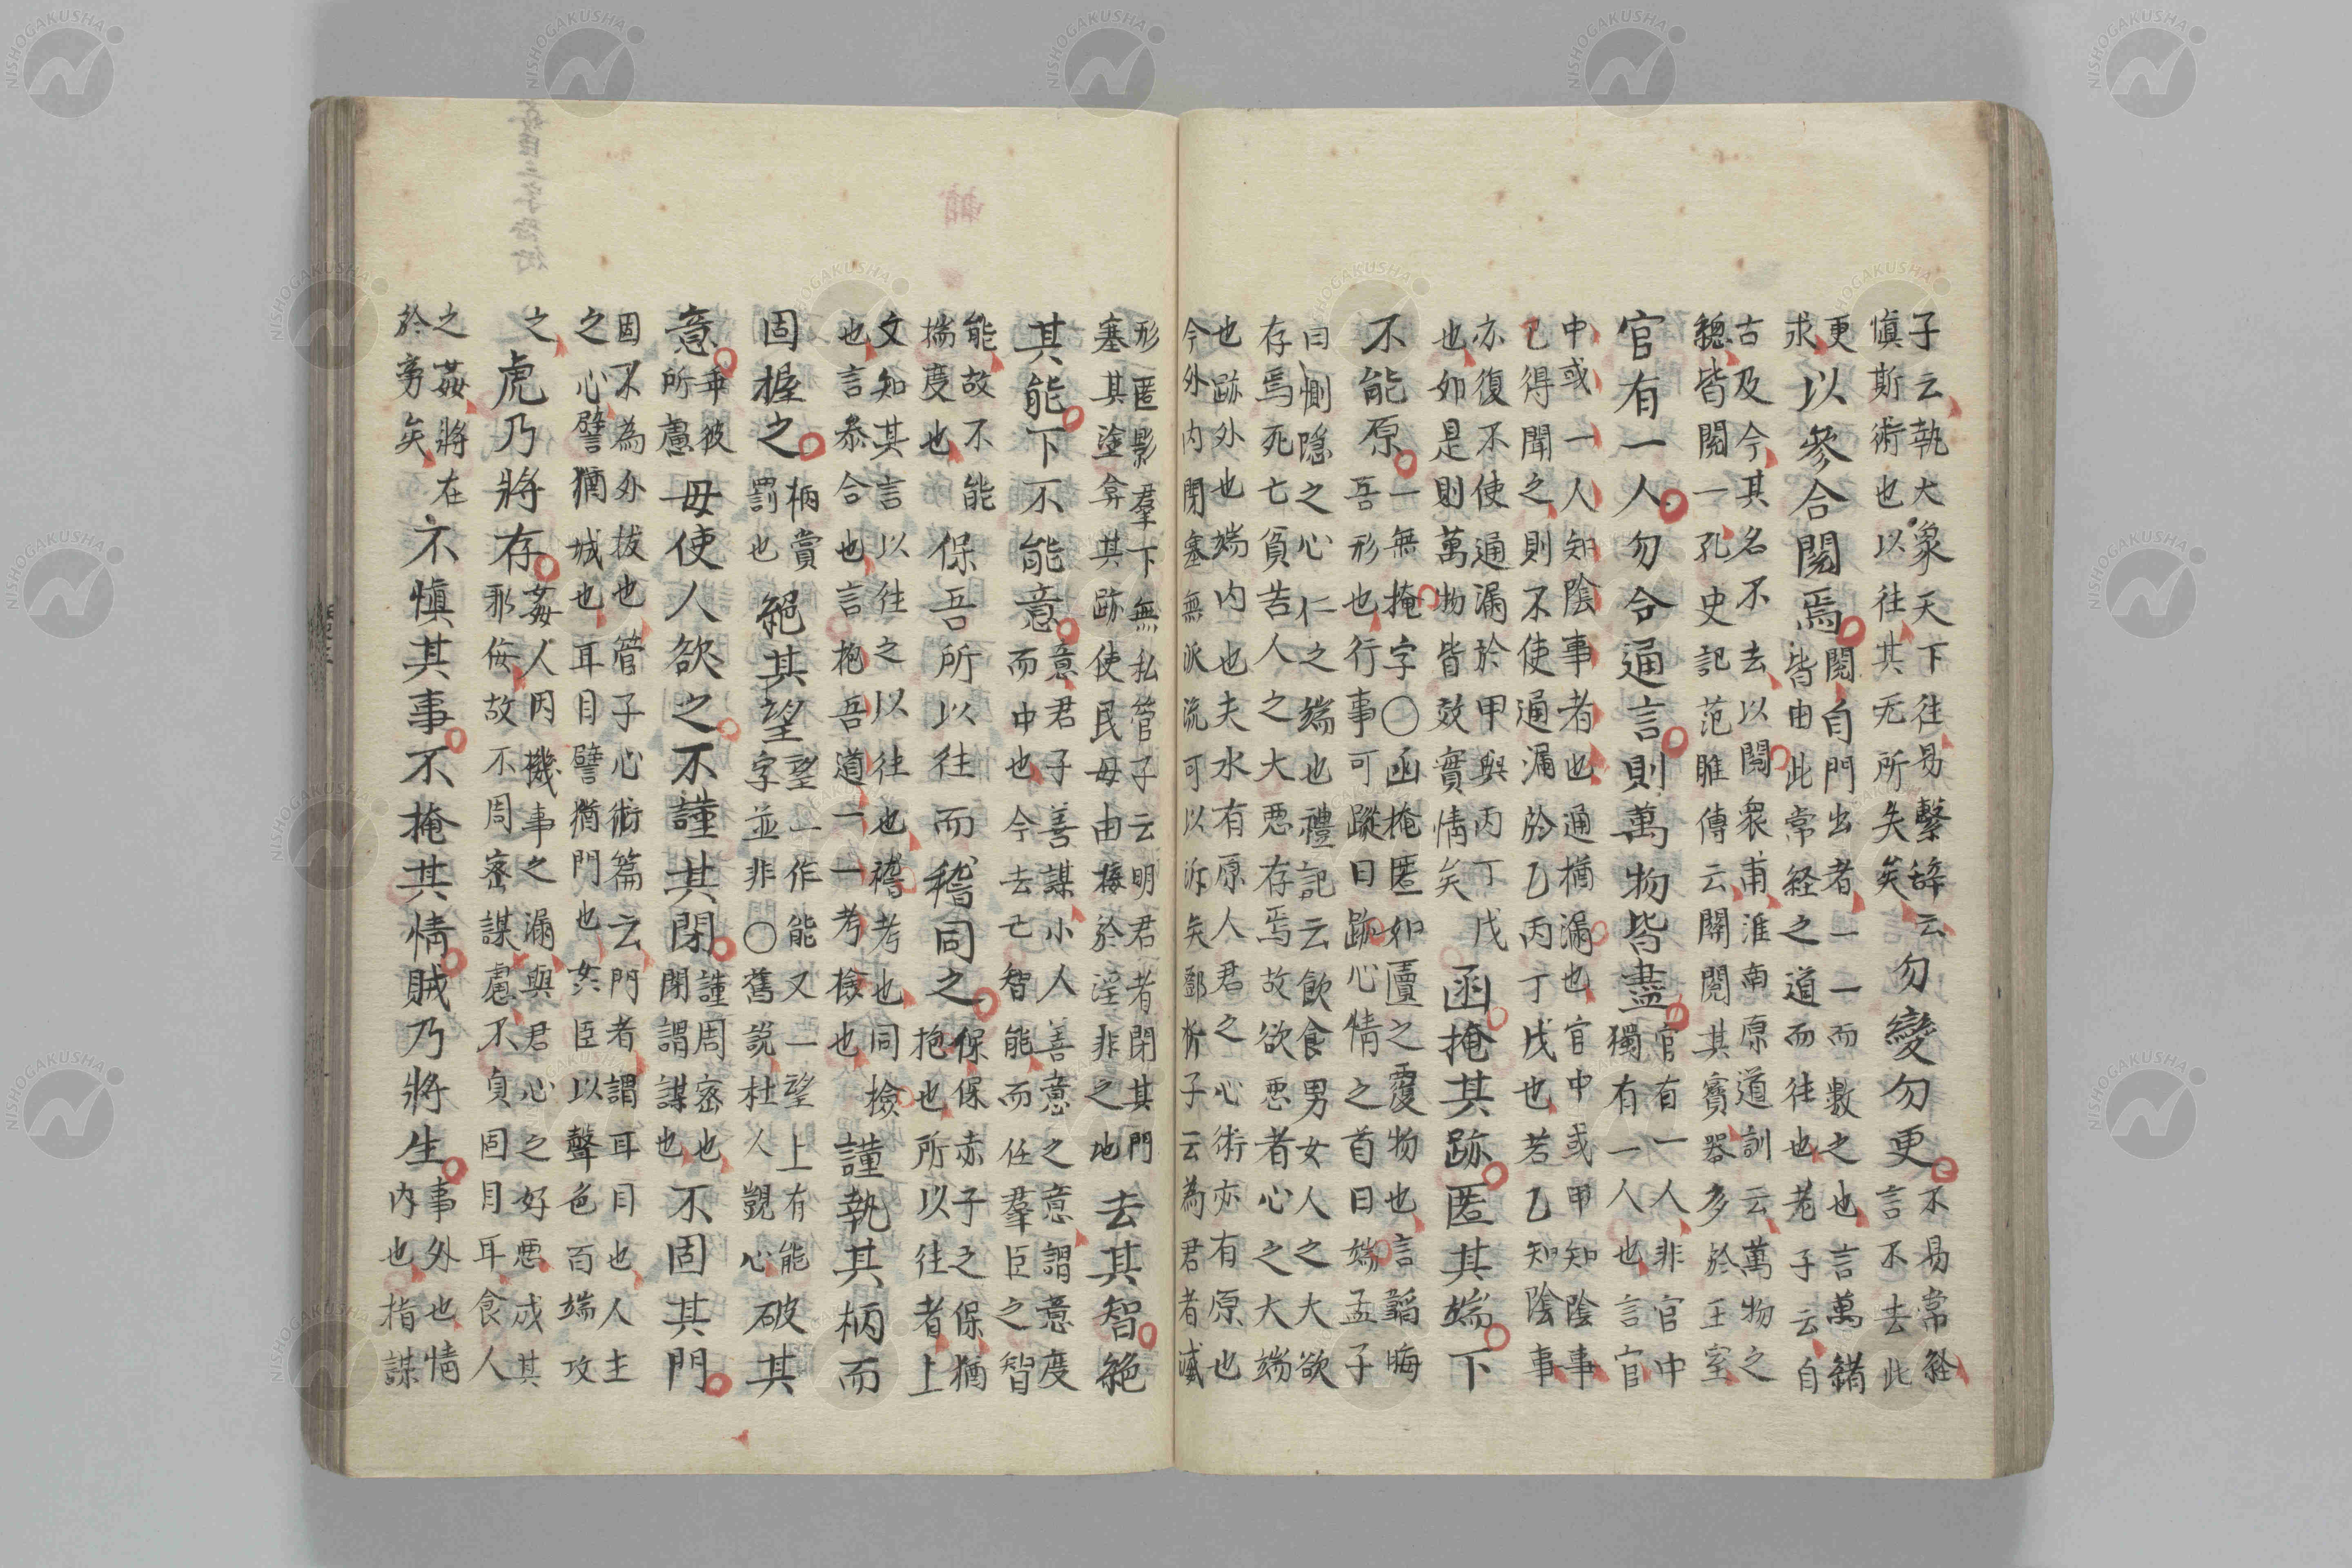 子云執大象天下往易繫辞云
慎斯術也以往其无所失矣
勿變勿更
不易常経
言不去此
更
求
以參合閲焉
閲自門出者一一而數之也言萬錯
皆由此常経之道而往也老子云自
古及今其名不去以閲衆甫淮南原道訓云萬物之
摠皆閲一孔史記范雎傳云關閲其寶器多於王室
官有一人勿令通言則萬物皆盡
官有一人非官中
獨有一人也言官
中或一人知陰事者也通猶漏也官中或甲知陰事
已得聞之則不使通漏於乙丙丁戊也若乙知陰事
亦復不使通漏於甲與丙丁戊
也如是則萬物皆效實情矣
函掩其跡匿其端下
不能原
一無掩字○函掩匿如匵之覆物也言韜晦
吾形也行事可蹤曰跡心情之首曰端孟子
曰惻隠之心仁之端也禮記云飲食男女人之大欲
存焉死亡貧苦人之大悪存焉故欲悪者心之大端
也跡外也端内也夫水有原人君之心術亦有原也
今外内閉塞無派流可以泝矣鄧析子云為君者滅
形匿影羣下無私管子云明君者閉其門
塞其塗弇其跡使民毋由接於淫非之地
去其智絶
其能下不能意
意君子善謀小人善意之意謂意度
而中也今去亡智能而任羣臣之智
能故不能
揣度也
保吾所以往而稽同之
保保赤子之保猶
抱也所以往者上
文知其言以往之以往也稽考也同檢
也言叅合也言抱吾道一一考檢也
謹執其柄而
固握之
柄賞
罰也
絶其望
望一作能又一望上有能
字並非○舊説杜人覬心
破其
意
車彼
所慮
毋使人欲之不謹其閉
謹周密也
閉謂謀也
不固其門
固不為外拔也管子心術篇云門者謂耳目也人主
之心譬猶城也耳目譬猶門也姦臣以聲色百端攻
之
虎乃將存
姦人因機事之漏與君心之好悪成其
邪侫故不周密謀慮不貞固目耳食人
之姦將在
於旁矣
不慎其事不掩其情賊乃將生
事外也情
内也指謀